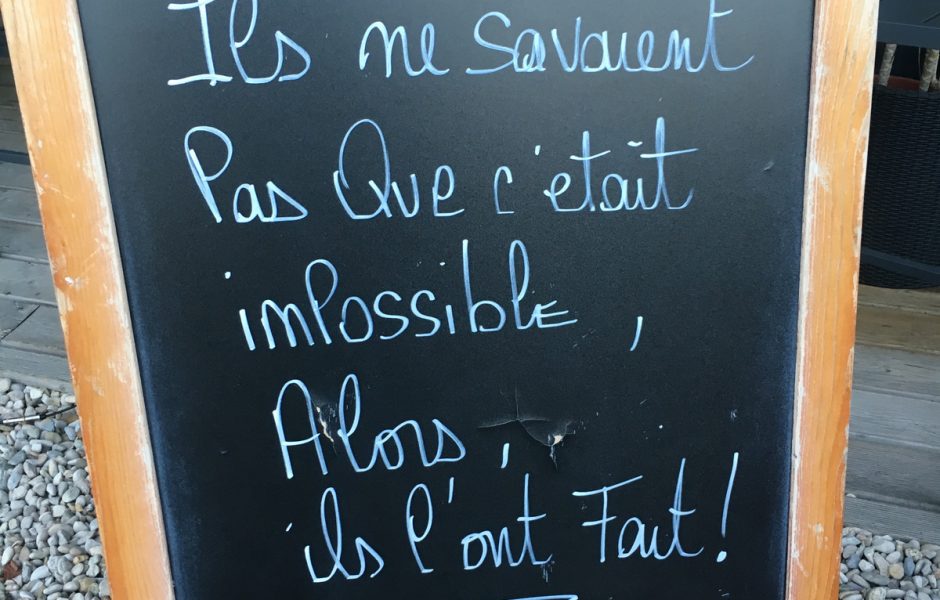 Ils ne Savaient
Pas Que c'était
impossible,
Alors,
ils l'ont Fait!